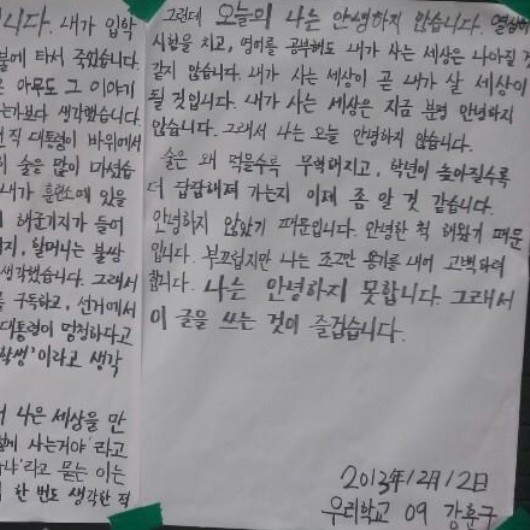 니다. 내가 입학
불에 타서 죽었습니다.
은 아무도 그 이야기
는가보다 생각했습니다.
전직 대통령이 바위에서
히 술을 많이 마셨습
내가 훈련소에 있을
해군기지가 들어
지, 할머니는 불쌍
생각했습니다. 그래서
를 구독하고, 선거에서
대통령이 멍청하다고
학생'이라고 생각
더 나은 세상을 만
함께 사는거야'라고
냐'라고 묻는 이는
한 번도 생각한 적
그런데 오늘의 나는 안녕하지 않습니다. 열심히
시험을 치고, 영어를 공부해도 내가 사는 세상은 나아질 것
같지 않습니다. 내가 사는 세상이 곧 내가 살 세상이
될 것입니다. 내가 사는 세상은 지금 분명 안녕하지
않습니다. 그래서 나는 오늘 안녕하지 않습니다.
술은 왜 먹을수록 무력해지고, 학년이 높아질수록
더 답답해져 가는지 이제 좀 알 것 같습니다.
안녕하지 않았기 때문입니다. 안녕한 척 해왔기 때문
입니다. 부끄럽지만 나는 조그만 용기를 내어 고백하려
합니다. 나는 안녕하지 못합니다. 그래서
이 글을 쓰는 것이 즐겁습니다.
2013年12月12日
우리학교 09 강훈구